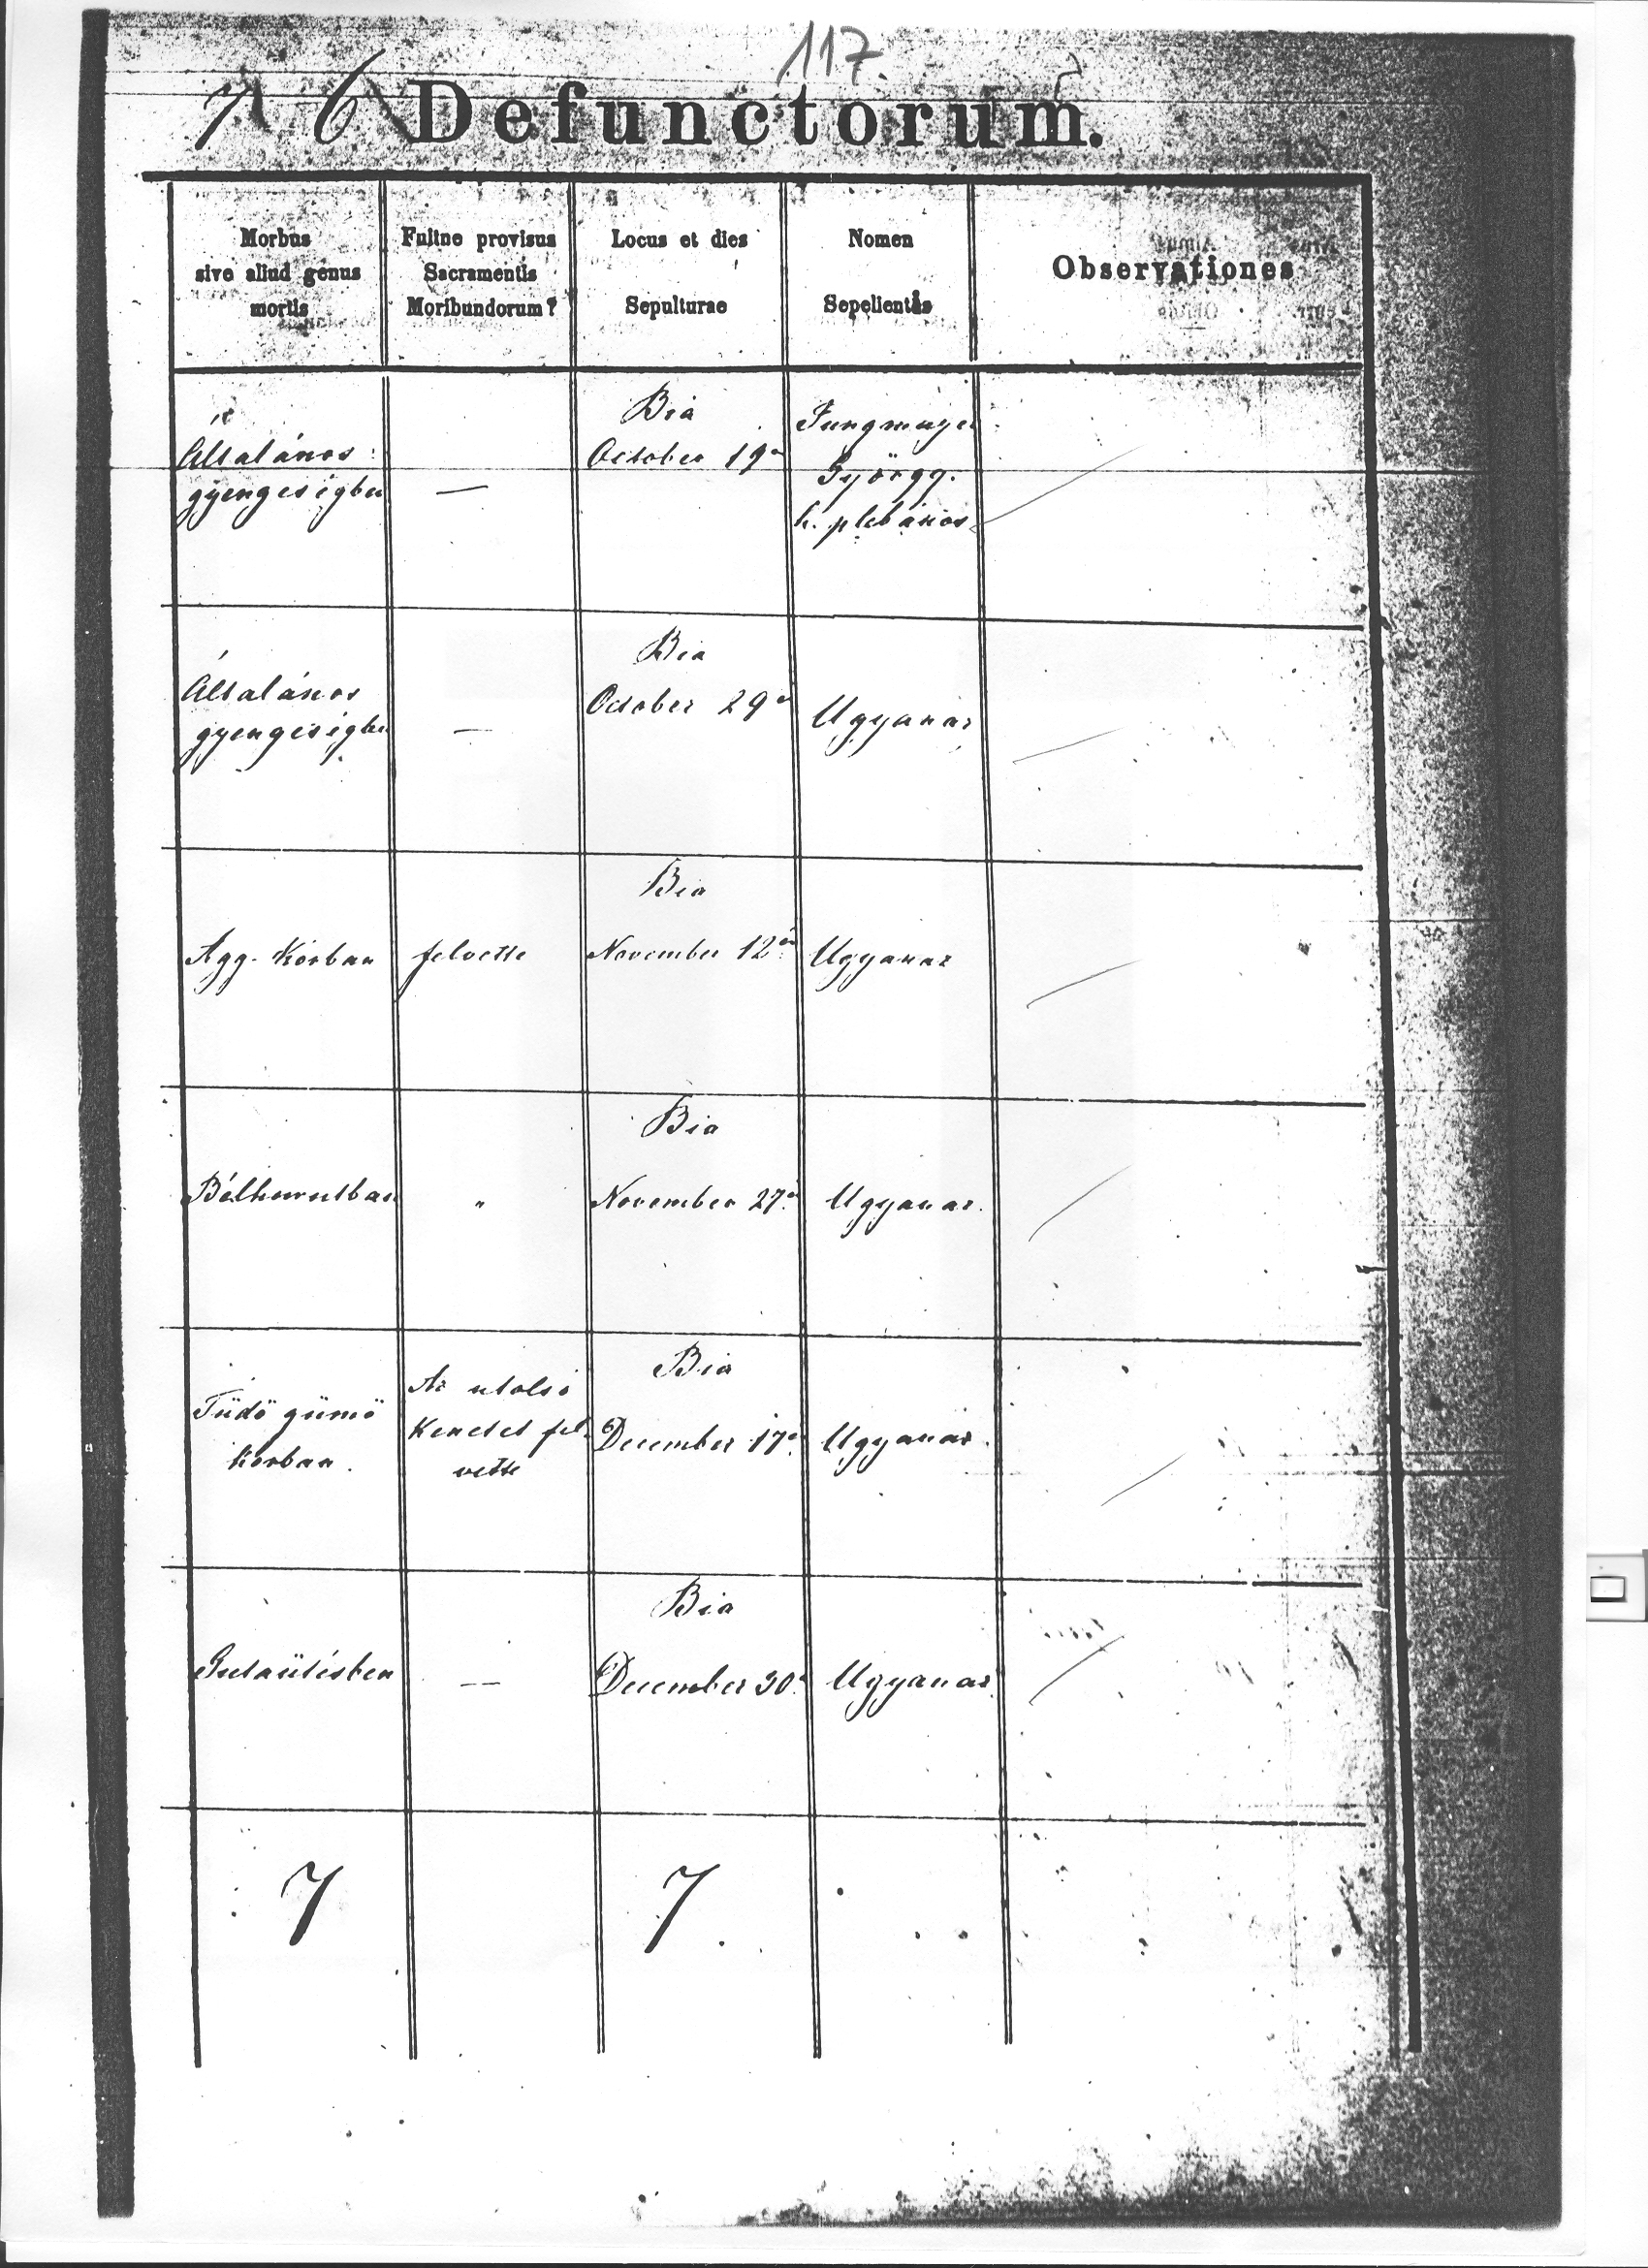 117.
76 Defunctorum.
Morbus
sive aliud genus
mortis
Fuitne provisus
Sacramentis
Moribundorum?
Locus et dies
Sepulturae
Nomen
Sepelientis
Observationes
Általános
gyengeségben
—
Bia
October 19én
Jungmayer
György.
h. plebános
Általános
gyengeségben
—
Bia
October 29én
Ugyanaz
Agg. Korban
felvette
Bia
November 12én
Ugyanaz
Bélhurutban
"
Bia
November 27én
Ugyanaz.
Tüdő gümő
Korban.
Az utolsó
Kenetet fel-
vette
Bia
December 17én
Ugyanaz.
Gutaütésben
—
Bia
December 30.
Ugyanaz
7
7.